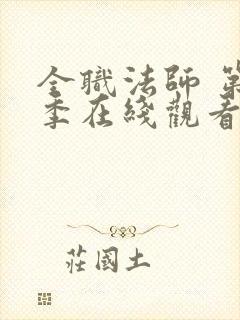 全職法師 第
季在綫觀看
莊國土